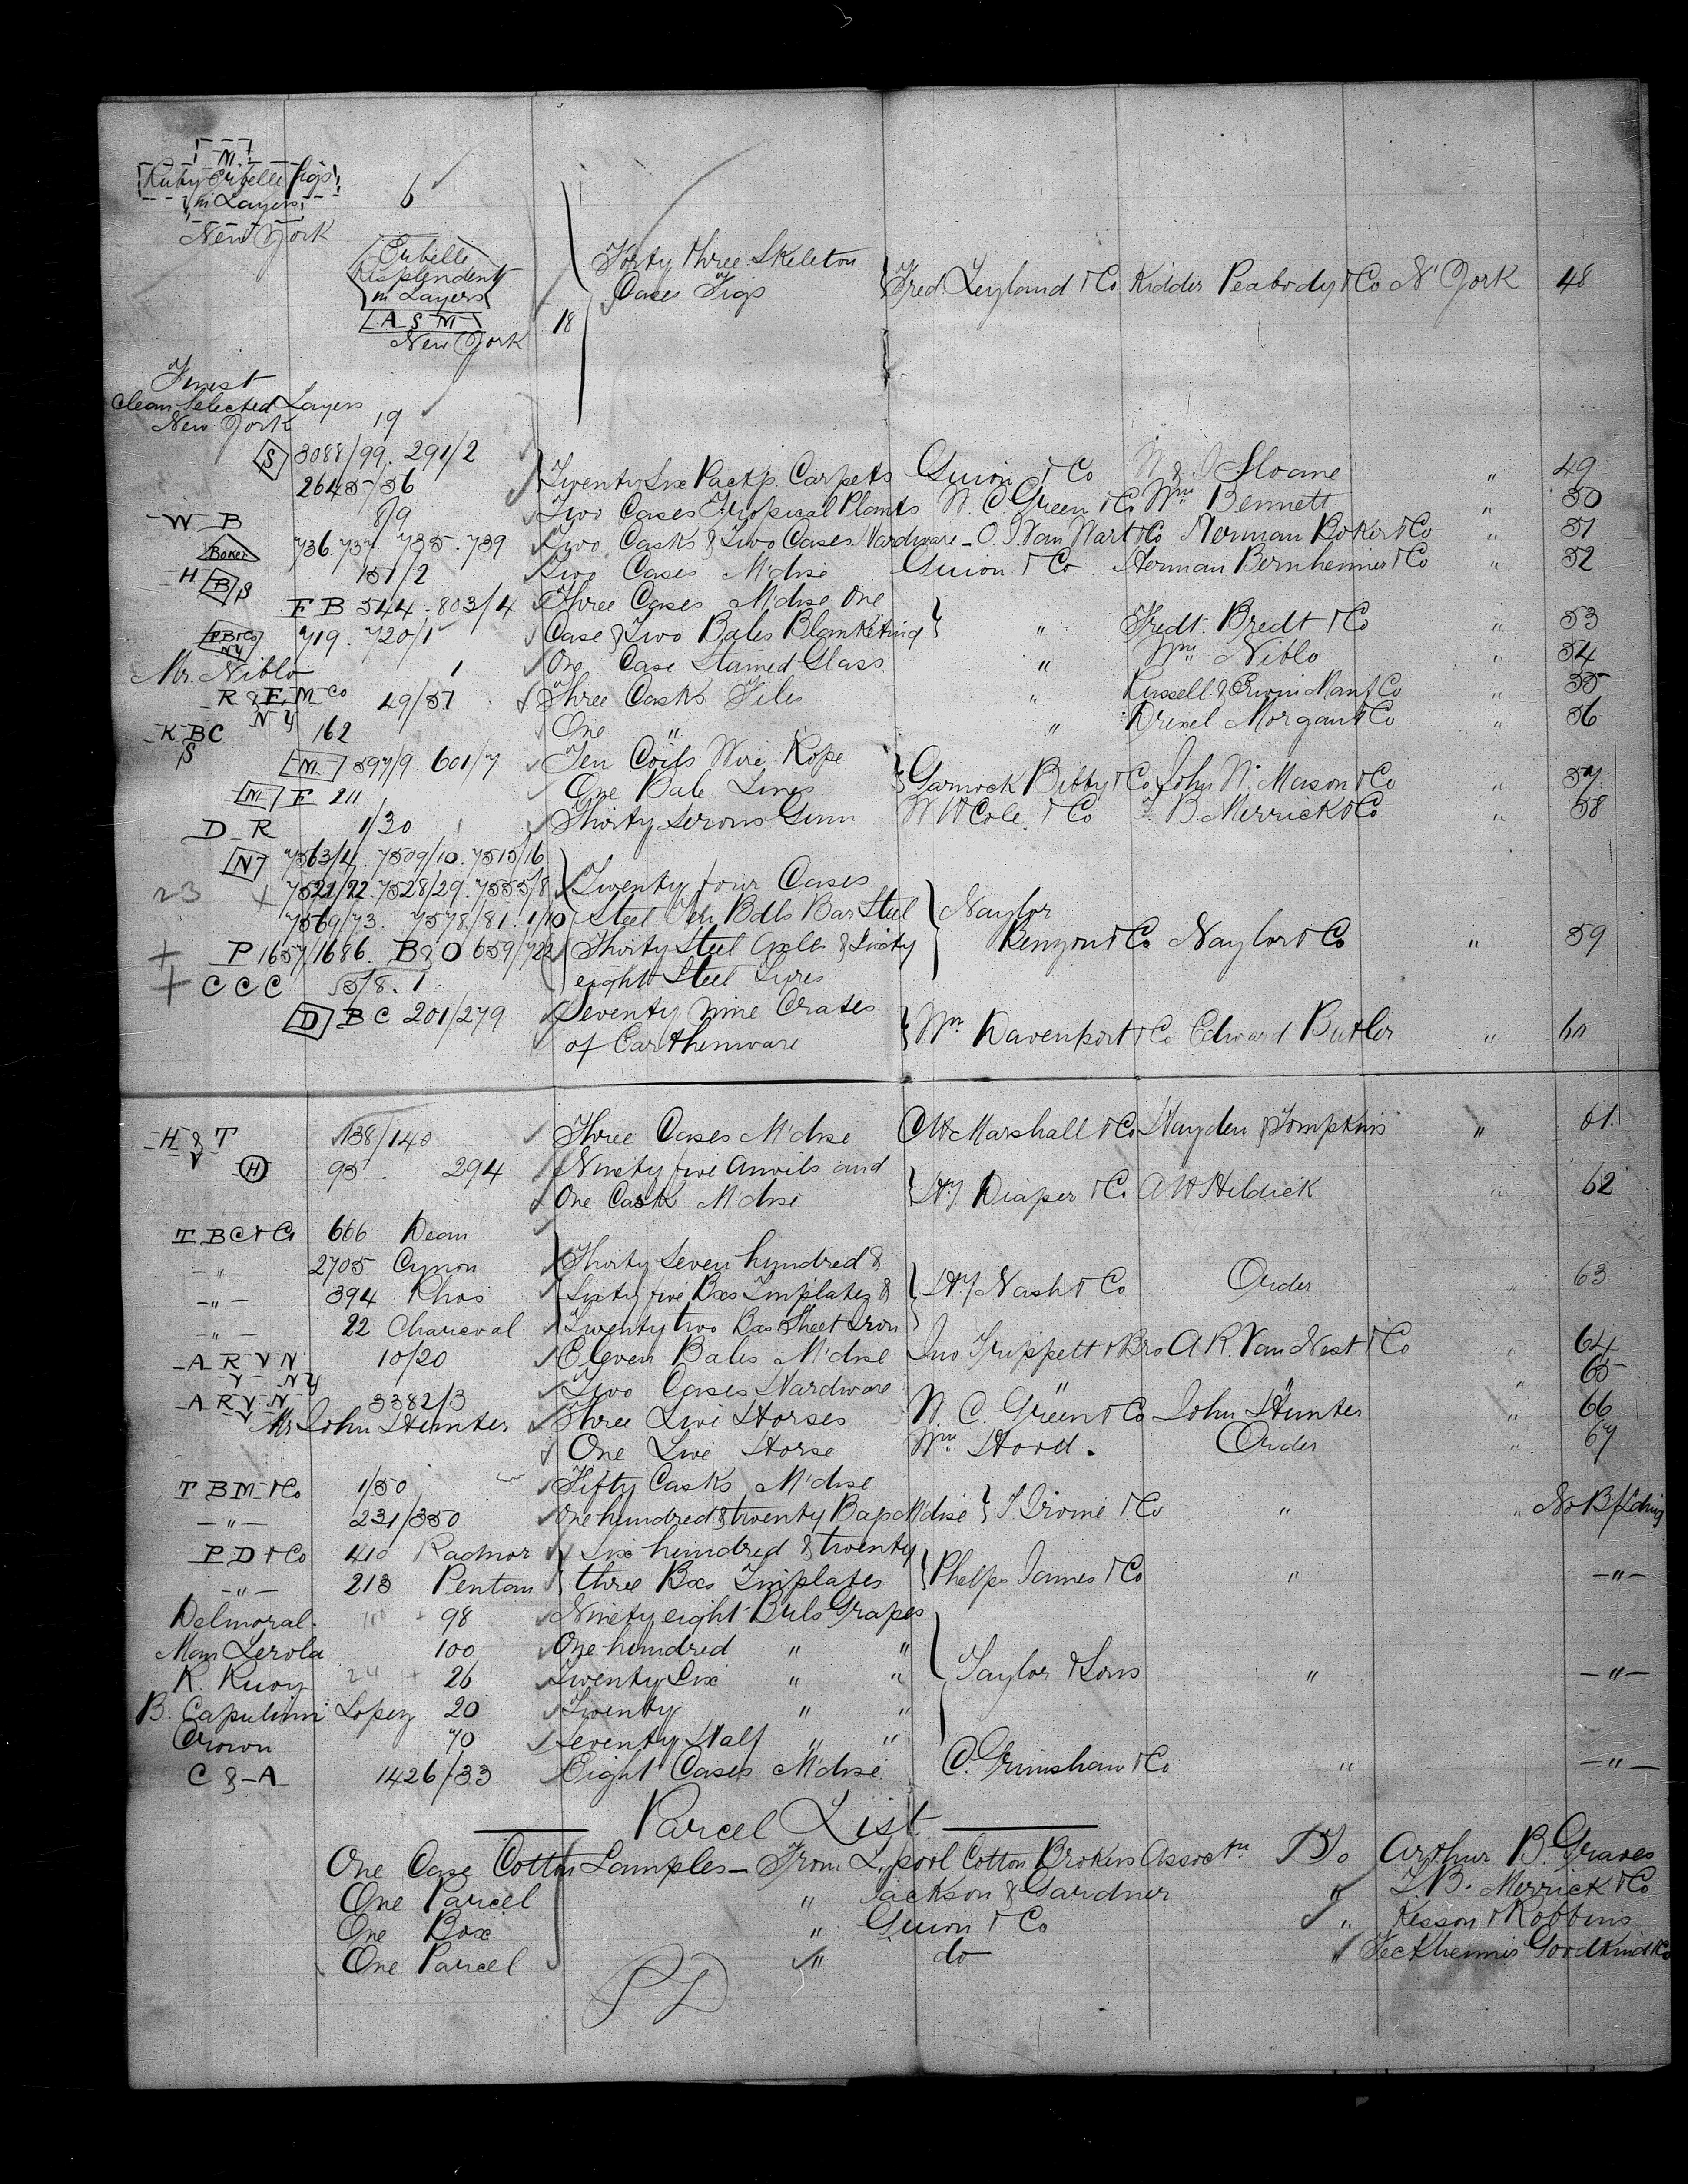 M.
Ruby Erbelle figs 6
in Layers
New York
Erbelle
Resplendent
in Layers
A S M 18
New York
Forty three Skeleton
Cases Figs } Fred Leyland & Co Kidder Peabody & Co N York 48
Finest
Clean Selected Layers
New York 19
S 3088/99. 291/2
2645/56 Twenty Six Packgs. Carpets Guion & Co W & J Sloane " 49
W B 8/9 Two Cases Tropical Plants W. C. Green & Co Wm Bennett " 50
Boker 736. 737. 735. 739 Two Casks & Two Cases Hardware - O. J. Van Wart & Co Herman Boker & Co " 51
H B S 151/2 Two Cases M'dise Guion & Co Herman Bernheimer & Co " 52
F B 544. 803/4 Three Cases M'dise One
FB & Co NY 719. 720/1 Case & Two Bales Blanketing } " Fredk. Bredt & Co " 53
Mr. Niblo 1 One Case Stained Glass " Wm Niblo " 54
R & E M Co NY 49/51 Three Casks Files " Russell & Erwin Manf Co " 55
K B C S 162 One " " Drexel Morgan & Co " 56
M 597/9. 601/7 Ten Coils Wire Rope
M F 211 One Bale Lines } Garnock Bibby & Co John W. Mason & Co " 57
D R 1/30 Thirty Serons Gum W W Cole & Co T. B. Merrick & Co " 58
N 7563/4. 7509/10. 7515/16
23 + 7521/22. 7528/29. 7555/8 Twenty four Cases
7569/73. 7578/81. 1/10 Steel Ten Bdls Bar Steel } Naylor
+ P 1657/1686. B & O 659/722 Thirty Steel Axles & Sixty Benzon & Co Naylor & Co " 59
+ C C C 5/8. 1. eight Steel Tyres
D B C 201/279 Seventy Nine Crates
of Earthenware } Wm Davenport & Co Edward Butler " 60
H & T 138/140 Three Cases M'dise C W Marshall & Co Hayden & Tompkins " 61.
V H 95. 294 Ninety five Anvils and
One Cask M'dise } Hy Diaper & Co A W Heldrick " 62
T B C & Co 666 Dean
" 2705 Cynon Thirty Seven hundred &
" 394 Rhos Sixty five Bxs Tinplates & } Hy Nash & Co Order " 63
" 22 Charcoal Twenty two Bxs Sheet Iron
A R V N V NY 10/20 Eleven Bales M'dise Jno Trippett & Bro A R. Van Nest & Co " 64
A R V N V 3382/3 Two Cases Hardware " " " 65
Mr John Hunter Three Live Horses W. C. Green & Co John Hunter " 66
One Live Horse Wm Hood. Order " 67
T B M & Co 1/50 Fifty Casks M'dise
" 231/350 One hundred & twenty Bags M'dise } T Drome & Co " " No B/Lding
P D & Co 410 Radnor Six hundred & twenty
" 213 Pentan three Bxs Tinplates } Phelps James & Co " "
Delmoral. 98 Ninety eight Brls Grapes
Man Lerola 100 One hundred " "
R. Ruoy 24 + 26 Twenty Six " " } Taylor & Sons " "
B. Capulini Lopez 20 Twenty " "
Crown 70 Seventy Half " "
C & A 1426/33 Eight Cases M'dise C. Grimshaw & Co " "
Parcel List
One Case Cotton Samples - From L'pool Cotton Brokers Assoctn To Arthur B. Graves
One Parcel " Jackson & Gardner " T. B. Merrick & Co
One Box " Guion & Co " Kesson & Robbins
One Parcel " do " Feckheimer Goodkind & Co